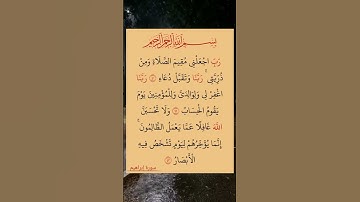 بِسْمِ اللَّهِ الرَّحْمَٰنِ الرَّحِيمِ
رَبِّ اجْعَلْنِي مُقِيمَ الصَّلَاةِ وَمِن
ذُرِّيَّتِي ۚ رَبَّنَا وَتَقَبَّلْ دُعَاءِ ۝ رَبَّنَا
اغْفِرْ لِي وَلِوَالِدَيَّ وَلِلْمُؤْمِنِينَ يَوْمَ
يَقُومُ الْحِسَابُ ۝ وَلَا تَحْسَبَنَّ
اللَّهَ غَافِلًا عَمَّا يَعْمَلُ الظَّالِمُونَ ۚ
إِنَّمَا يُؤَخِّرُهُمْ لِيَوْمٍ تَشْخَصُ فِيهِ
الْأَبْصَارُ ۝
سورة إبراهيم